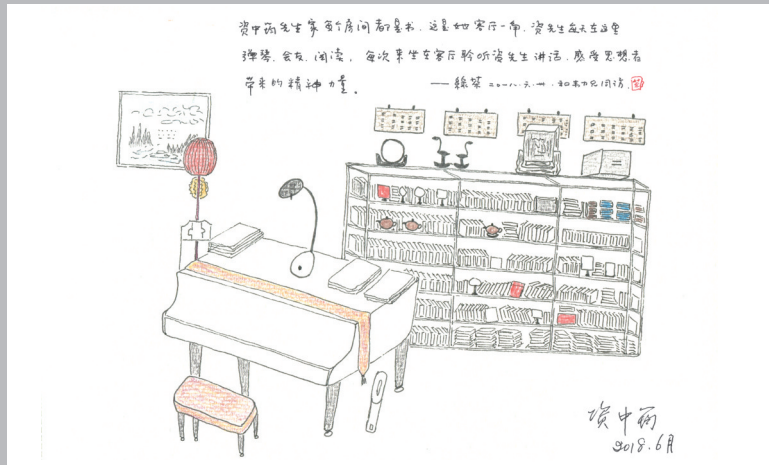 资中筠先生家每个房间都是书，这是她客厅一角，资先生每天在这里
弹琴、会友、阅读，每次来坐在客厅聆听资先生讲话，感受思想者
带来的精神力量。 ——绿茶 二〇一八.六.
资中筠
2018.6月